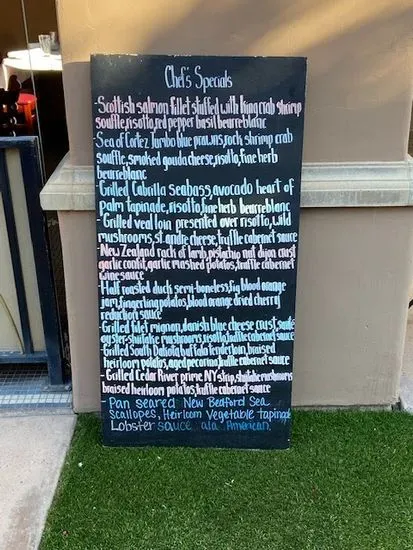 Chef's Specials
-Scottish salmon fillet stuffed with king crab shrimp
souffle,risotto,red pepper basil beurreblanc
-Sea of Cortez Jumbo blue prawns,rock shrimp crab
souffle,smoked gouda cheese,risotto,fine herb
beurreblanc
-Grilled Cabrilla seabass,avocado heart of
palm tapinade,risotto,fine herb beurreblanc
-Grilled veal loin presented over risotto,wild
mushrooms,st.andre cheese,truffle cabernet sauce
-New Zealand rack of lamb,pistachio nut dijon crust
garlic confit,garlic mashed potatos,truffle cabernet
wine sauce
-Half roasted duck semi-boneless,fig blood orange
jam,fingerling potatos,blood orange dried cherry
reduction sauce
-Grilled filet mignon,danish blue cheese crust,sauté
oyster-shiitake mushrooms,risotto,truffle cabernet sauce
-Grilled South Dakota buffalo tenderloin,braised
heirloom potatos,aged pecorino,truffle cabernet sauce
-Grilled Cedar River prime NY strip,shiitake mushrooms
braised heirloom potatos,truffle cabernet sauce
-Pan seared New Bedford Sea
Scallopes, Heirloom Vegetable tapinade
Lobster sauce ala American.